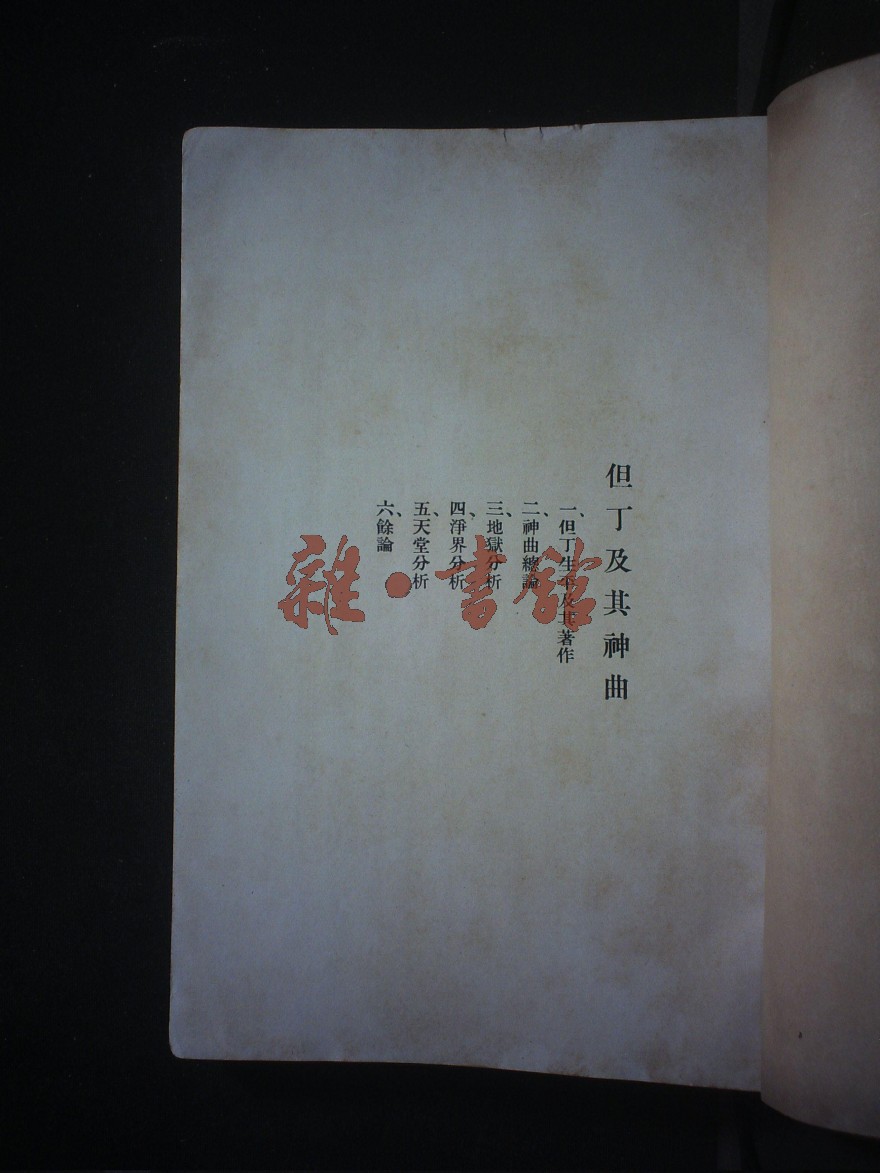 但丁及其神曲
一、但丁生平及其著作
二、神曲總論
三、地獄分析
四、淨界分析
五、天堂分析
六、餘論
雜·書館